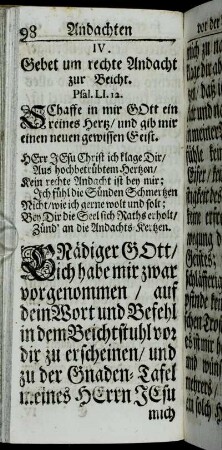 98 Andachten
IV.
Gebet um rechte Andacht
zur Beicht.
Psal. LI. 12.
SChaffe in mir GOtt ein
reines Hertz / und gib mir
einen neuen gewissen Geist.
HErr JEsu Christ ich klage Dir /
Aus hochbetrübtem Hertzen /
Kein rechte Andacht ist bey mir;
Ich fühl die Sünden Schmertzen
Nicht wie ich gerne wolt und solt;
Bey Dir die Seel sich Raths erholt /
Zünd' an die Andachts Kertzen.
GNädiger GOtt /
ich habe mir zwar
vorgenommen / auf
dein Wort und Befehl
in dem Beichtstuhl vor
dir zu erscheinen / und
zu der Gnaden-Tafel
meines HErrn JEsu
mich